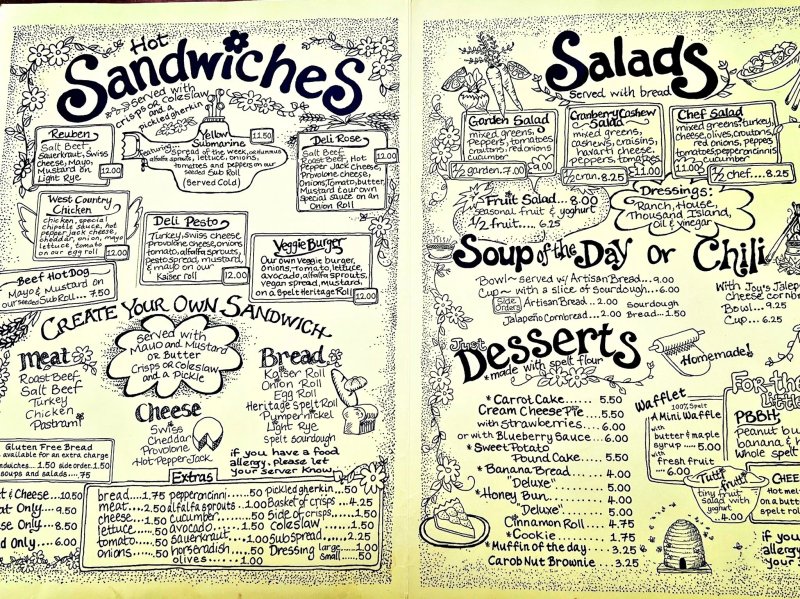 Hot
Sandwiches
served with
crisps or coleslaw
and a
pickled gherkin
Reuben
Salt Beef,
Sauerkraut, Swiss
Cheese, Mayo,
Mustard on
Light Rye
12.00
Yellow
Submarine
11.50
Featuring
spread of the week, or Hummus
alfalfa sprouts, lettuce, onions,
tomatoes and peppers on our
seeded Sub Roll
(Served Cold)
Deli Rose
Salt Beef,
Roast Beef, Hot
Pepper Jack Cheese,
Provolone cheese,
Onions, Tomato, butter,
Mustard & our own
special sauce on an
Onion Roll
12.00
West Country
Chicken
chicken, special
chipotle sauce, hot
pepper jack cheese,
cheddar, onion, mayo
lettuce, tomato
on our egg roll
12.00
Deli Pesto
Turkey, Swiss cheese
Provolone cheese, onions,
tomato, alfalfa sprouts,
pesto spread, mustard,
& mayo on our
Kaiser roll
12.00
Veggie Burger
Our own veggie burger,
onions, tomato, lettuce,
avocado, alfalfa sprouts,
vegan spread, mustard,
on a Spelt Heritage Roll
12.00
Beef Hot Dog
Mayo & Mustard on
our seeded Sub Roll... 7.50
Create Your Own Sandwich
Meat
Roast Beef
Salt Beef
Turkey
Chicken
Pastrami
served with
Mayo and Mustard
or Butter
Crisps or coleslaw
and a Pickle
Cheese
Swiss
Cheddar
Provolone
Hot Pepper Jack
Bread
Kaiser Roll
Onion Roll
Egg Roll
Heritage Spelt Roll
Pumpernickel
Light Rye
Spelt Sourdough
if you have a food
allergy, please let
your server know
Gluten Free Bread
available for an extra charge
1.50 side order. 1.50
soups and salads .... .75
& Cheese...10.50
Only... 9.50
Only... 8.50
Only... 6.00
Extras
bread.... 1.75
meat.... 2.50
cheese.... 1.50
lettuce.... .50
tomato.... .50
onions.... .50
pepperoncini.... .50
alfalfa sprouts.. 1.00
cucumber.... .50
avocado.... 1.50
sauerkraut.. 1.00
horseradish.. .50
olives.... 1.00
pickled gherkin.. .50
Basket of crisps.. 4.25
Side of crisps... 1.50
coleslaw.... 1.50
sub spread.... 2.25
Dressing large.. 1.00
small.. .50
Salads
served with bread
Garden Salad
mixed greens,
Peppers, tomatoes
croutons, red onions
cucumber
9.00
1/2 garden. 7.00
Cranberry Cashew
Salad
mixed greens,
cashews, craisins,
havarti cheese,
peppers, tomatoes
11.00
1/2 cran. 8.25
Chef Salad
mixed greens, turkey,
cheese, olives, croutons,
red onions, peppers,
tomatoes, pepperoncinis
cucumber
11.00
1/2 chef.... 8.25
Fruit Salad.... 8.00
seasonal fruit & yoghurt
1/2 fruit.... 6.25
Dressings:
Ranch, House,
Thousand Island,
Oil & Vinegar
Soup of the Day or Chili
Bowl~ served w/ Artisan Bread... 9.00
Cup~ with a slice of Sourdough... 6.00
Side
Orders
Artisan Bread... 2.00
Jalapeño Cornbread... 2.00
Sourdough
Bread... 1.50
With Joy's
cheese
Bowl... 9.25
Cup... 6.25
Just
Desserts
*made with spelt flour
Homemade!
*Carrot Cake...... 5.50
Cream Cheese Pie.... 5.50
with strawberries..... 6.00
or with Blueberry Sauce... 6.00
*Sweet Potato
Pound Cake.... 5.50
*Banana Bread.... 4.00
"Deluxe".... 5.00
*Honey Bun.... 4.00
"Deluxe".... 5.00
Cinnamon Roll.... 4.75
*Cookie...... 1.75
*Muffin of the day... 3.25
Carob Nut Brownie... 3.25
Wafflet
100% Spelt
A Mini Waffle
with
butter & maple
syrup.... 5.00
with
fresh fruit
.... 6.00
Tutti Frutti
tiny fruit
salad with
yoghurt
4.00
For the
PBBH
Peanut
banana &
whole spelt
Hot
on a
spelt
if you
allergy
your